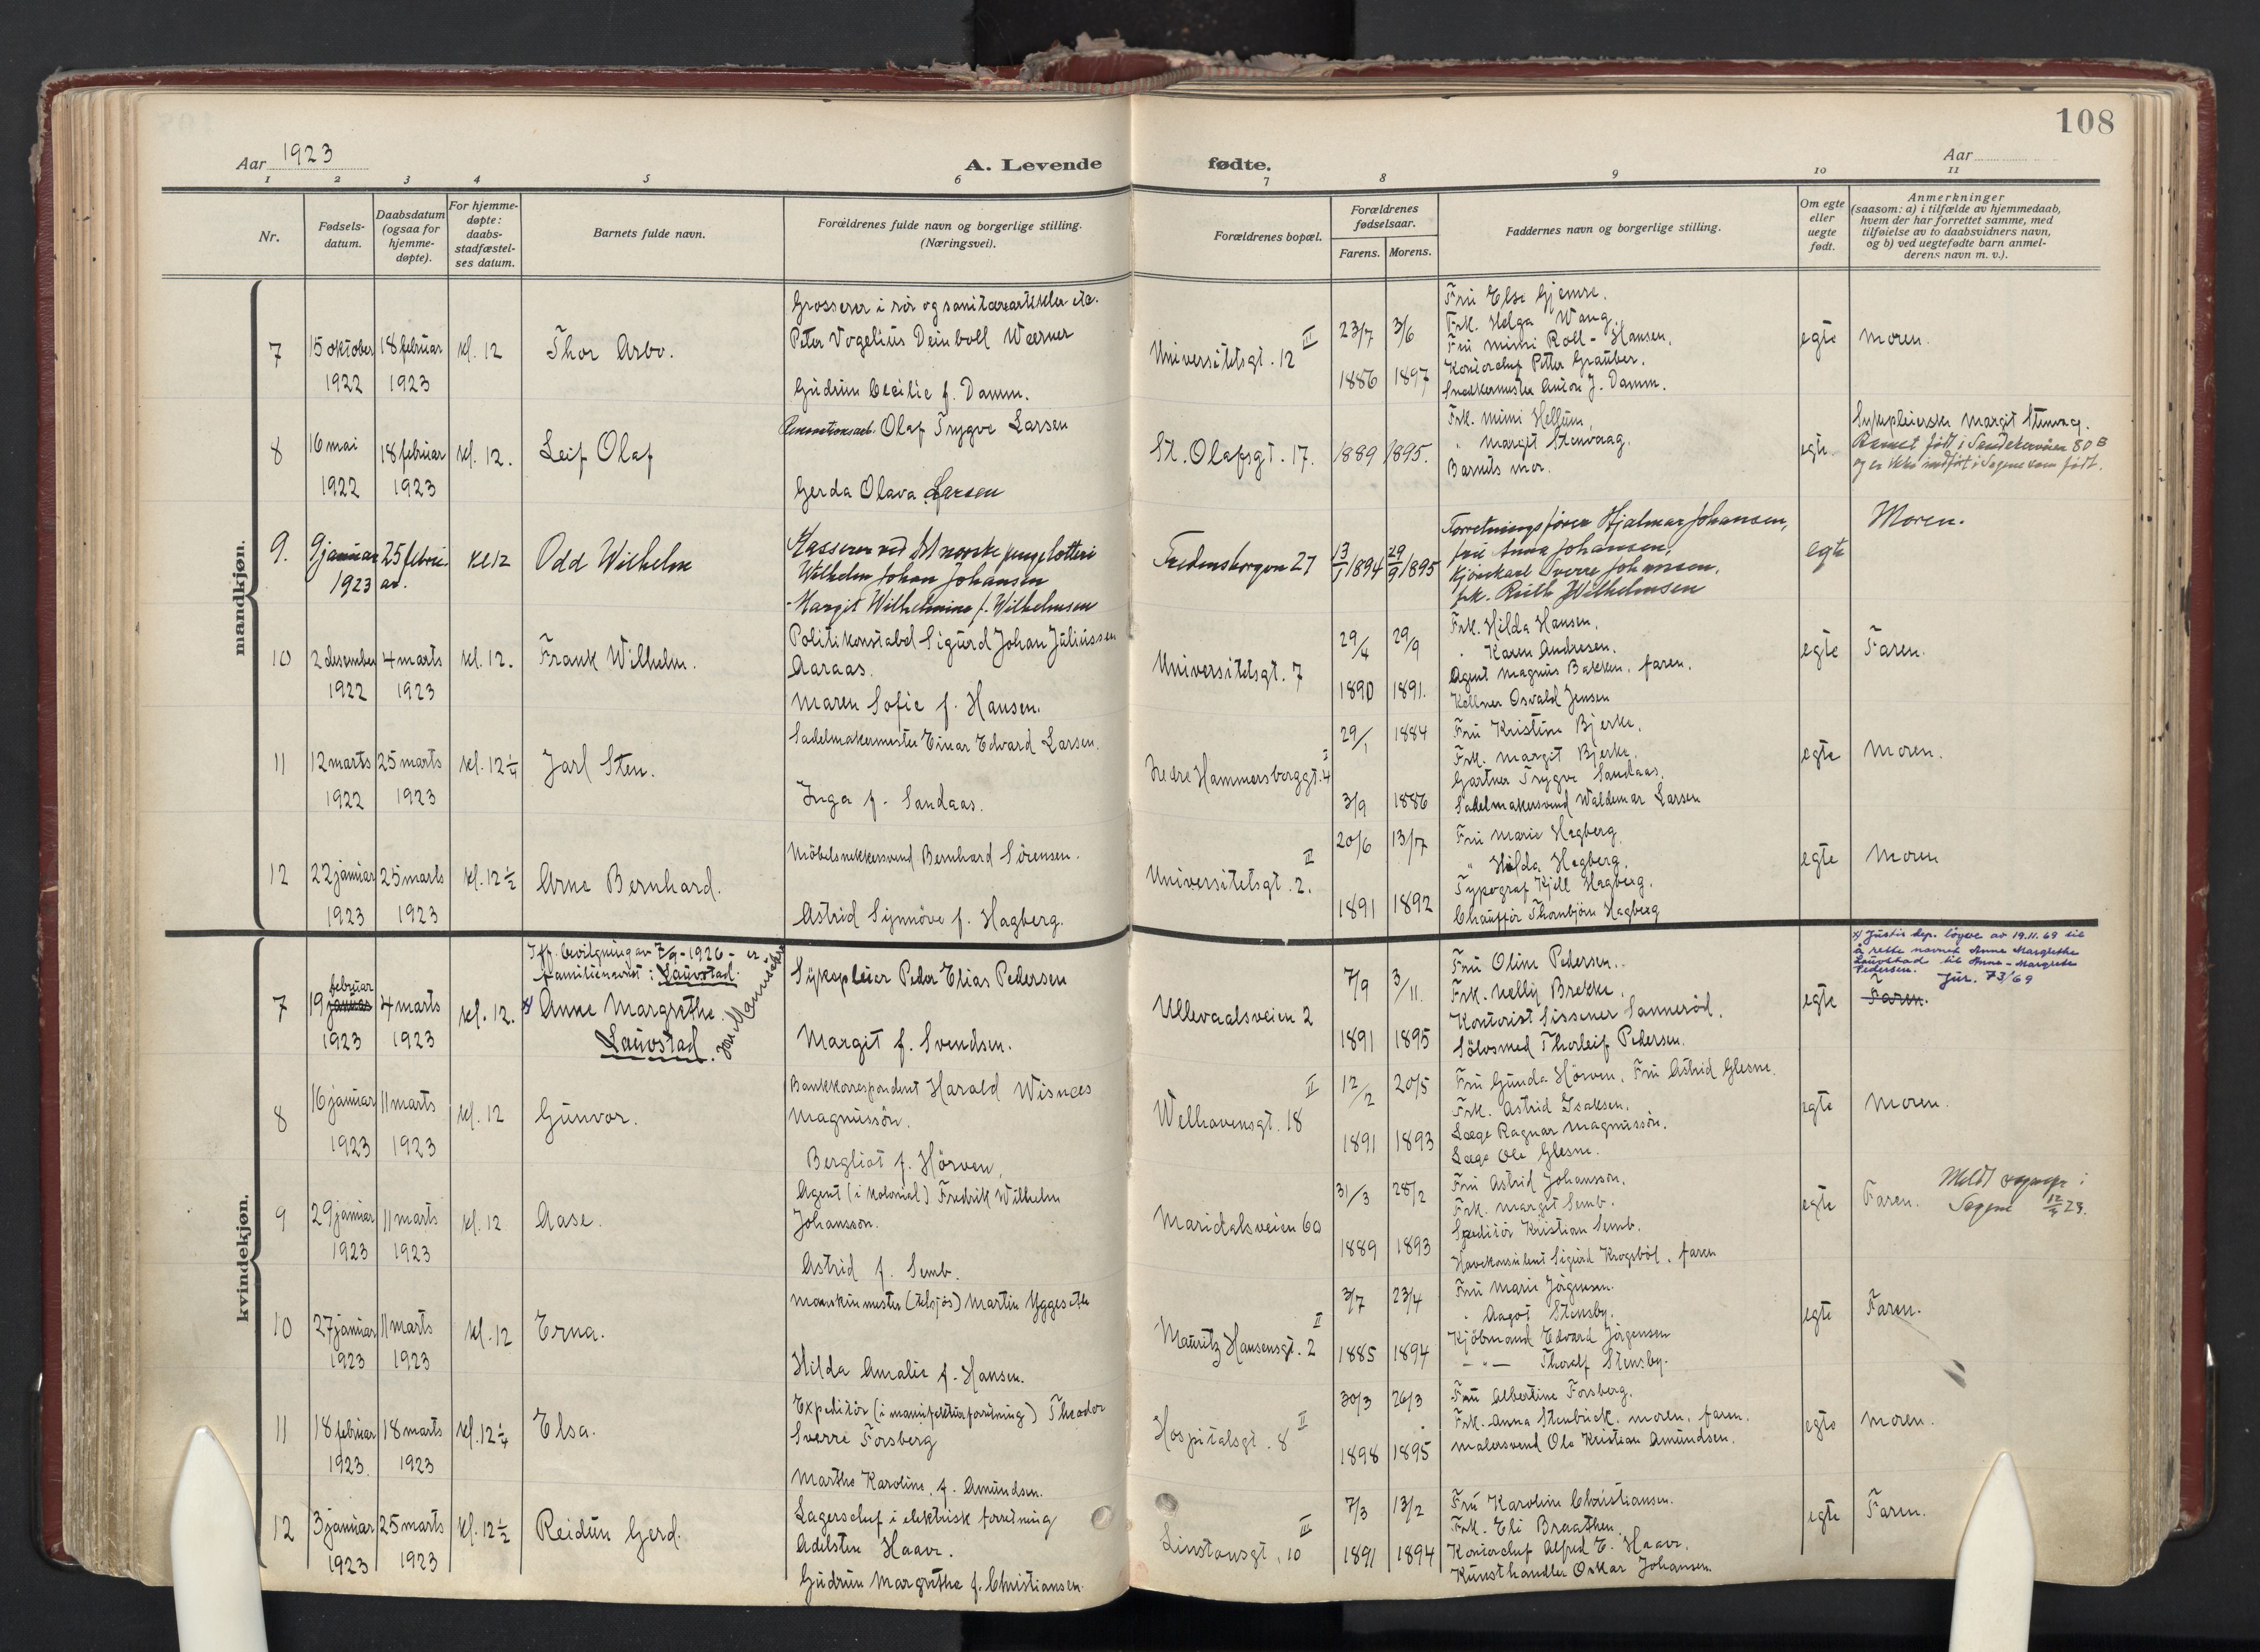 108
Aar 1923
A. Levende fødte.
Aar
1 2 3 4 5 6 7 8 9 10 11
Nr.
Fødsels-
datum.
Daabsdatum
(ogsaa for
hjemme-
døpte).
For hjemme-
døpte:
daabs-
stadfæstel-
ses datum.
Barnets fulde navn.
Forældrenes fulde navn og borgerlige stilling.
(Næringsvei).
Forældrenes bopæl.
Forældrenes
fødselsaar.
Farens. Morens.
Faddernes navn og borgerlige stilling.
Om egte
eller
uegte
født.
Anmerkninger
(saasom: a) i tilfælde av hjemmedaab,
hvem der har forrettet samme, med
tilføielse av to daabsvidners navn,
og b) ved uegtefødte barn anmel-
derens navn m. v.).
mandkjøn.
7
15 oktober
1922
18 februar
1923
kl. 12
Thor Arbo.
Grosserer i rör og sanitærartikler etc.
Peter Vogelius Deinboll Wærner
Gudrun Cecilie f. Damm.
Universitetsgt. 12 III
23/7 3/6
1886 1897
Fru Else Gjemre.
Frk. Helga Wang.
Fru Mimi Roll-Hansen.
Kontorchef Petter Grauber.
Snedkermester Anton J. Damm.
egte
Moren.
8
16 mai
1922
18 februar
1923
kl. 12.
Leif Olaf
Olaf Trygve Larsen
Gerda Olava Larsen
St. Olafsgt. 17.
1889 1895.
Frk. Mimi Hellum,
" Margit Stenvaag.
Barnets mor.
egte.
Sykepleierske Margit Stenvaag.
Barnet født i 80 B
og er ikke indført i Sagene som født.
9.
9 januar
1923
25 febru-
ar.
kl 12
Odd Wilhelm
Kasserer ved det norske pengelotteri
Wilhelm Johan Johansen
Margit Wilhelmine f. Wilhelmsen
Fredensborgvn 27
13/1 1894 29/9 1895
Forretningsfører Hjalmar Johansen,
fru Anna Johansen,
Sverre Johansen,
frk. Ruth Wilhelmsen
egte
Moren.
10
2 desember
1922
4 marts
1923
kl. 12.
Frank Wilhelm.
Politikonstabel Sigurd Johan Juliussen
Aaraas.
Maren Sofie f. Hansen.
Universitetsgt. 7
29/4 29/9
1890 1891.
Frk. Hilda Hansen,
" Karen Andresen.
Agent Magnus Bakken, faren.
Kellner Osvald Jensen
egte
Faren.
11
12 marts
1922
25 marts
1923
kl. 12 1/4
Jarl Sten.
Sadelmakermester Einar Edvard Larsen.
Inga f. Sandaas.
Nedre Hammersborggt. 4 I
29/1 1884
3/9 1886
Fru Kristine Bjerke,
Frk. Margit Bjerke,
Gartner Trygve Sandaas,
Sadelmakersvend Waldemar Larsen
egte
Moren.
12
22 januar
1923
25 marts
1923
kl. 12 1/2
Arne Bernhard.
Möbelsnekkersvend Bernhard Sörensen.
Astrid Synnöve f. Hagberg.
Universitetsgt. 2. II
20/6 13/7
1891 1892
Fru Marie Hagberg,
" Hilda Hagberg,
Typograf Kjell Hagberg.
Chaufför Thornbjörn Hagberg
egte
Moren
kvindekjøn.
7
19 januar februar
1923
4 marts
1923
kl. 12.
Iflg. bevilgning av 7/9-1926- er
familienavnet: Lauvstad.
x) Anne Margrethe.
Lauvstad.
Sykepleier Peder Elias Pedersen
Margit f. Svendsen.
Ullevaalsveien 2
7/9 3/11.
1891 1895
Fru Oline Pedersen.
Frk. Nelly Brekke.
Kontorist Sissener Sannerød.
Sölvsmed Thorleif Pedersen.
egte
x) Justis dep. löyve av 19.11.69 til
å rette navnet Anne Margrethe
Lauvstad til Anne-Margrete
Pedersen. Jur. 73/69
Faren.
8
16 januar
1923
11 marts
1923
kl. 12
Gunvor.
Bankkorrespondent Harald Wisnæs
Magnussön.
Bergliot f. Hörven,
Welhavensgt. 18 II
12/2 20/5
1891 1893
Fru Gunda Hörven, Fru Astrid Glesne.
Frk. Astrid Isaksen.
Læge Ragnar Magnussön.
Læge Ole Glesne.
egte
Moren.
9
29 januar
1923
11 marts
1923
kl. 12
Aase.
Agent (i kolonial) Fredrik Wilhelm
Johansson.
Astrid f. Semb.
Maridalsveien 60
31/3 28/2
1889 1893
Fru Astrid Johansson.
Frk. Margit Semb.
Speditör Kristian Semb.
Havekonsulent Sigurd Krogsböl, faren
egte
Faren.
Meldt i
Sagene 12/4 23.
10
27 januar
1923
11 marts
1923
kl. 12
Erna.
Maskinmester (tilsjös) Martin Yggeseth
Hilda Amalie f. Hansen.
Mauritz Hansensgt. 2 II
3/7 23/4
1885 1894
Fru Marie Jörgensen.
" Aagot Stensby.
Kjöbmand Edvard Jörgensen
— " — Thoralf Stensby.
egte
Faren.
11
18 februar
1923.
18 marts
1923
kl. 12 1/4
Elsa.
Expeditör (i manufakturforretning) Theodor
Sverre Forsberg
Marthe Karoline f. Amundsen.
Hospitalsgt. 8 II
30/3 26/3
1898 1895
Fru Albertine Forsberg.
Frk. Anna Stenbrick. moren, faren.
Malersvend Ole Kristian Amundsen.
egte
Moren.
12
3 januar
1923
25 marts
1923
kl. 12 1/2
Reidun Gerd.
Lagerschef i elektrisk forretning
Adelsten Haavr.
Gudrun Margrethe f. Christiansen.
Linstowsgt. 10 III
7/3 13/2
1891 1894
Fru Karoline Christiansen.
Frk. Eli Braathen,
Kontorchef Alfred E. Haavr.
Kunsthandler Oskar Johansen.
egte
Faren.